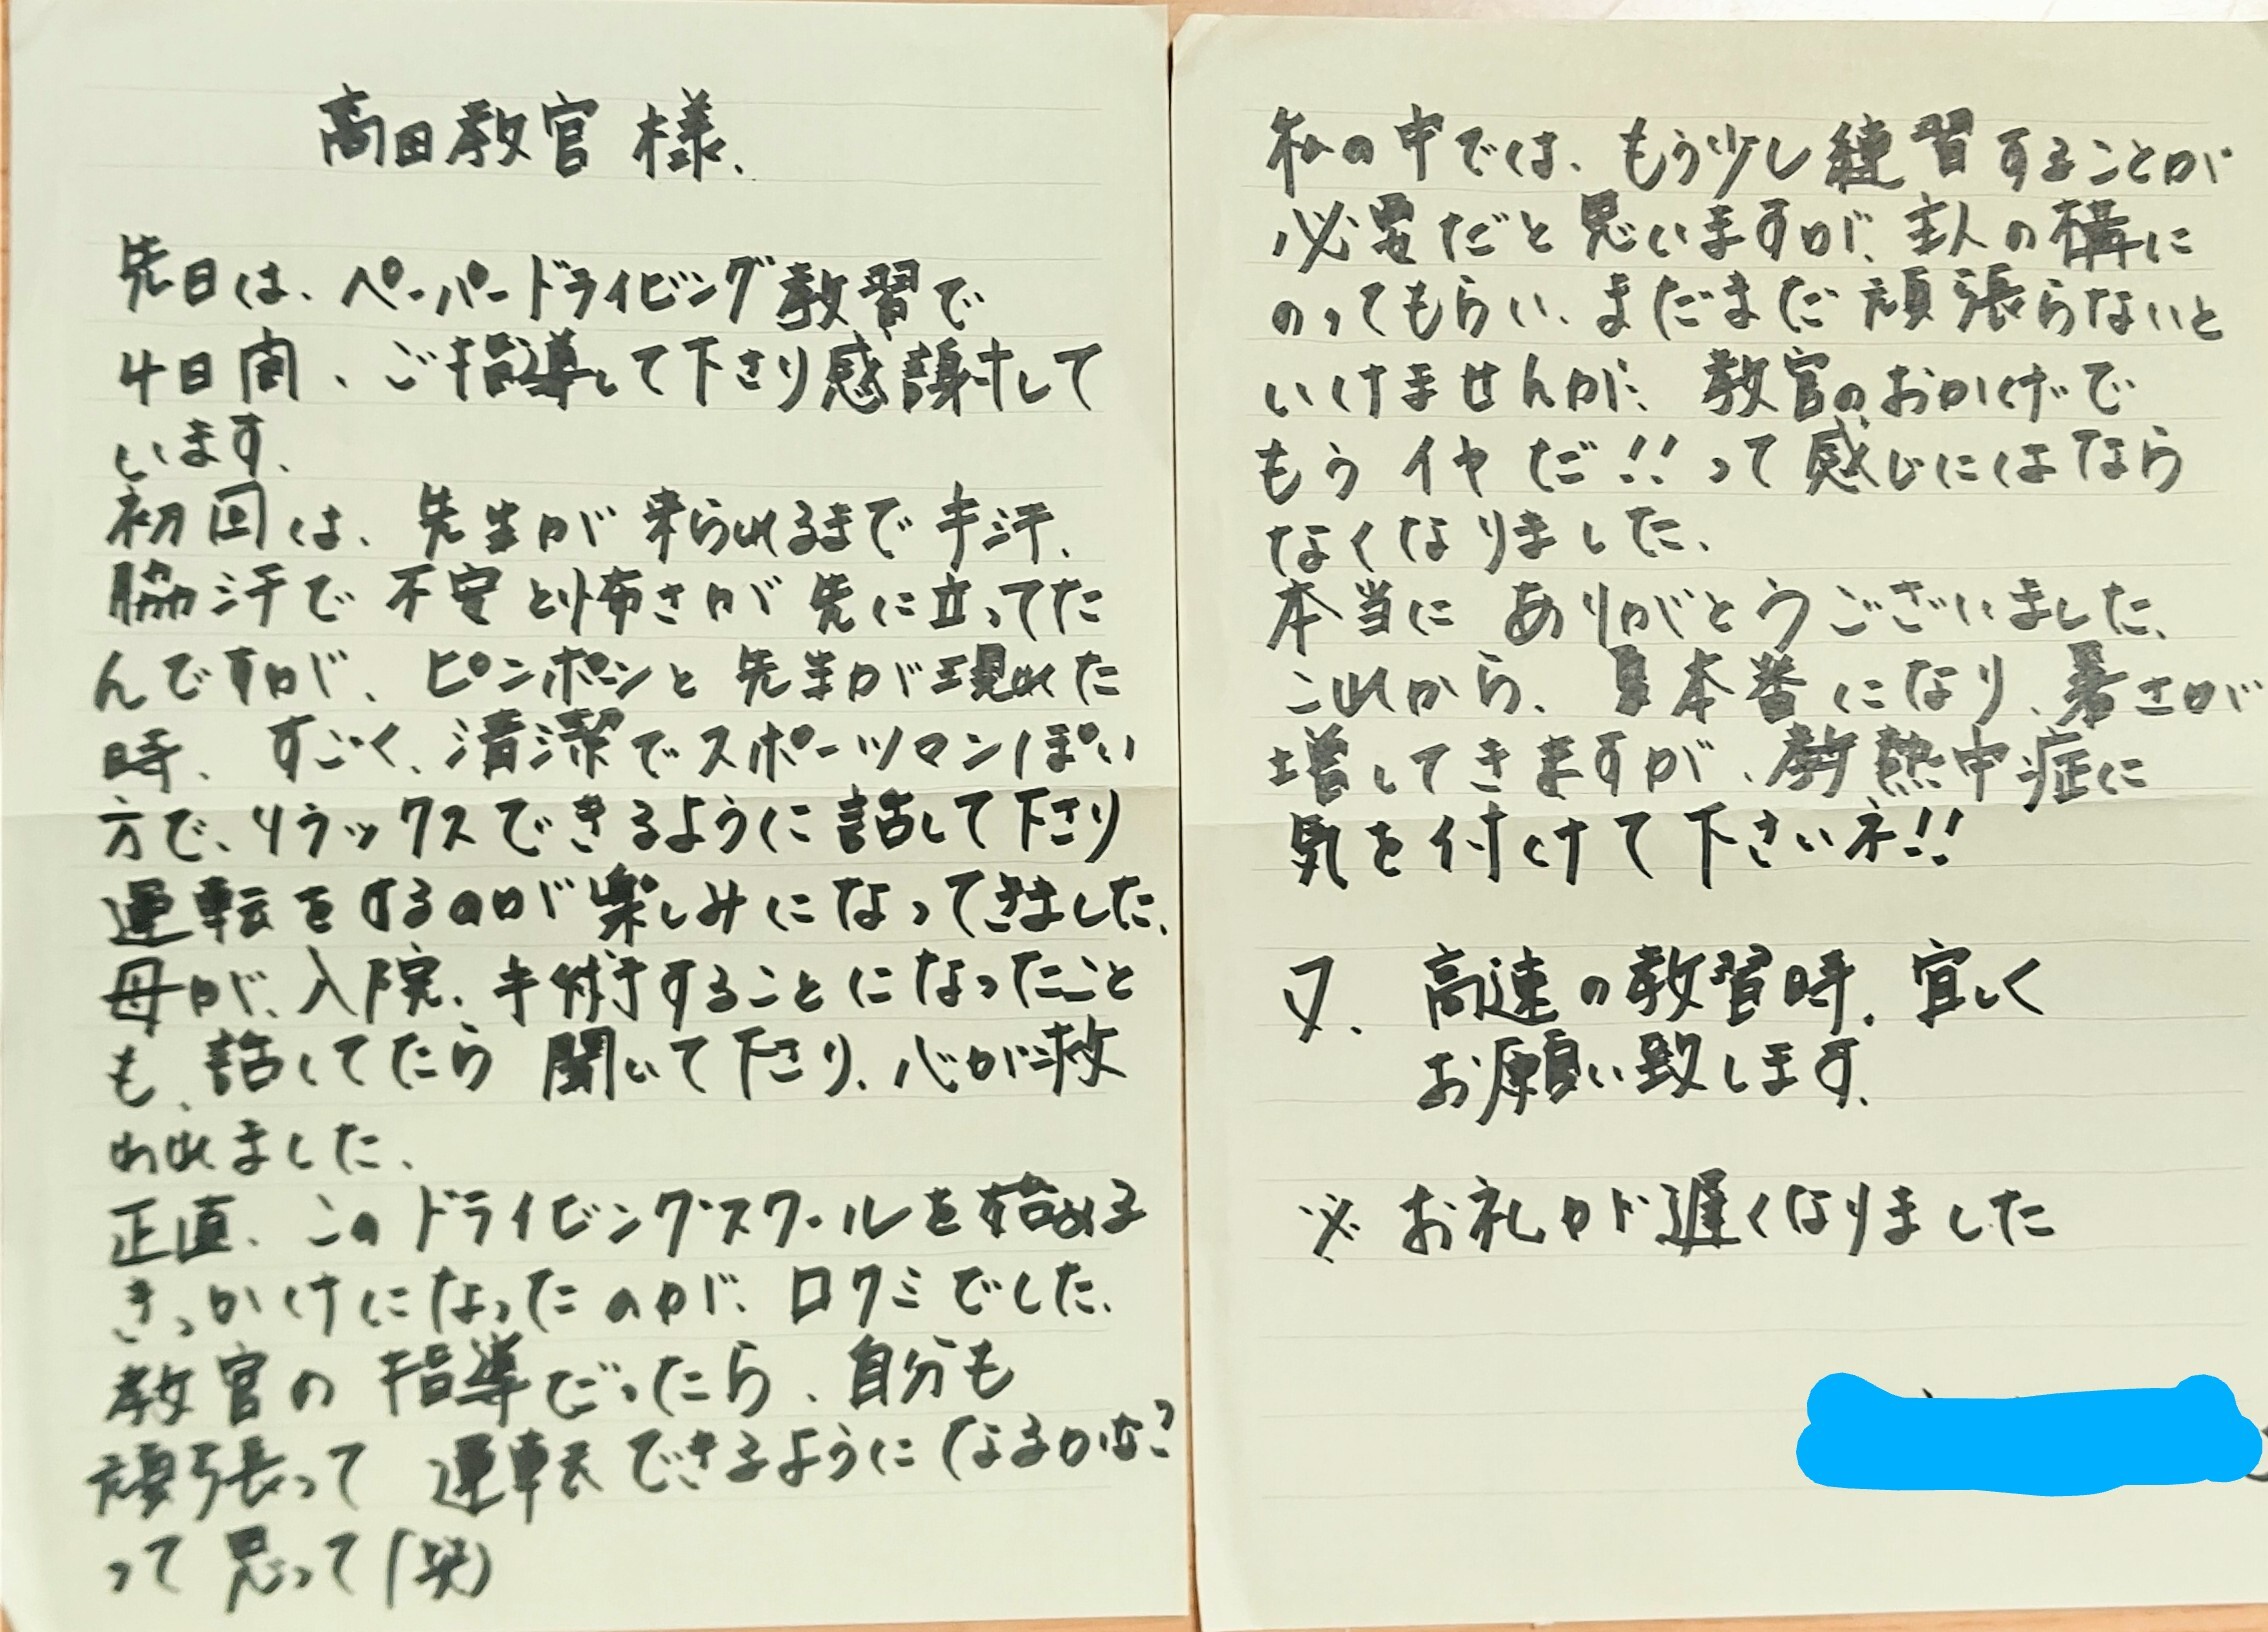 高田教官 様、
先日は、ペーパードライビング教習で
4日間、ご指導して下さり感謝して
います、
初回は、先生が来られるまで手汗、
脇汗で不安と怖さが先に立ってた
んですが、ピンポーンと先生が現れた
時、すごく、清潔でスポーツマンぽい
方で、リラックスできるように話して下さり
運転をするのが楽しみになってきました、
母が、入院、手術することになったこと
も、話してたら聞いて下さり、心が救
われました、
正直、このドライビングスクールを始める
きっかけになったのが、口クミでした、
教官の指導だったら、自分も
頑張って運転できるようになるかな?
って思って(笑)
私の中では、もう少し練習することが
必要だと思いますが、主人の横に
のってもらい、まだまだ頑張らないと
いけませんが、教官のおかげで
もうイヤだ!!って感じにはなら
なくなりました、
本当にありがとうございました、
これから、夏本番になり、暑さが
増してきますが、熱中症に
気を付けて下さいネ!!
又、高速の教習時、宜しく
お願い致します、
※お礼が遅くなりました